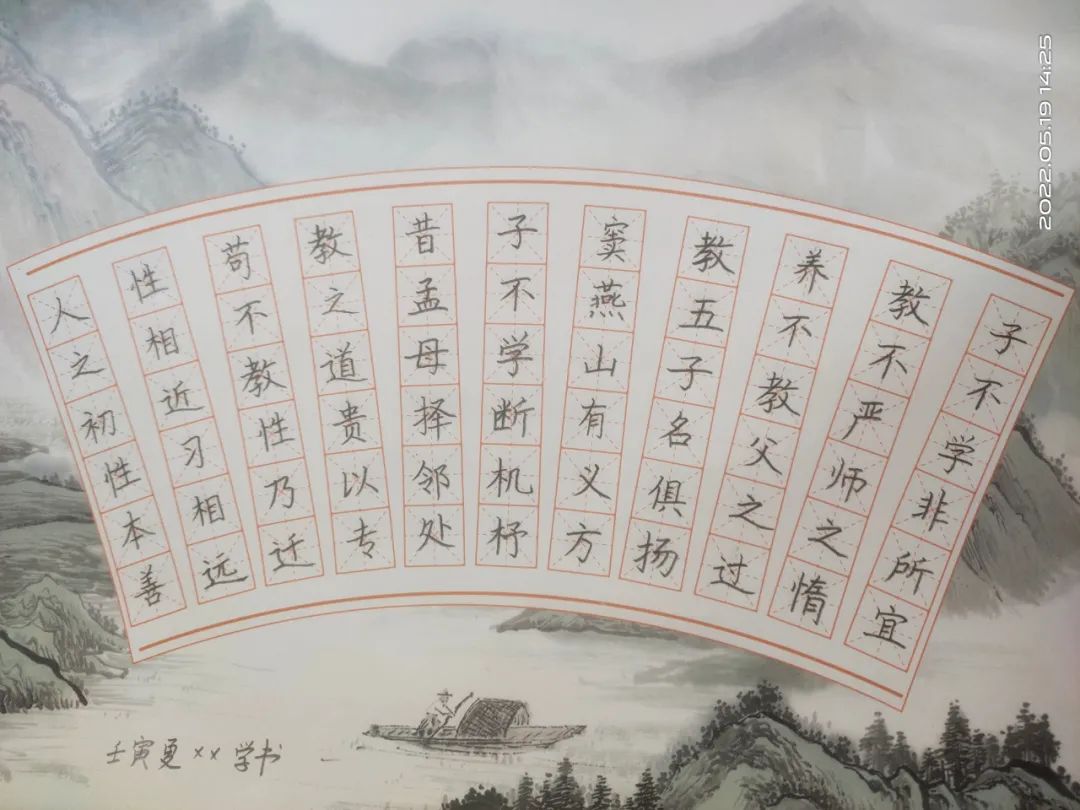 人之初性本善
性相近习相远
苟不教性乃迁
教之道贵以专
昔孟母择邻处
子不学断机杼
窦燕山有义方
教五子名俱扬
养不教父之过
教不严师之惰
子不学非所宜
壬寅夏××学书
2022.05.19 14:25